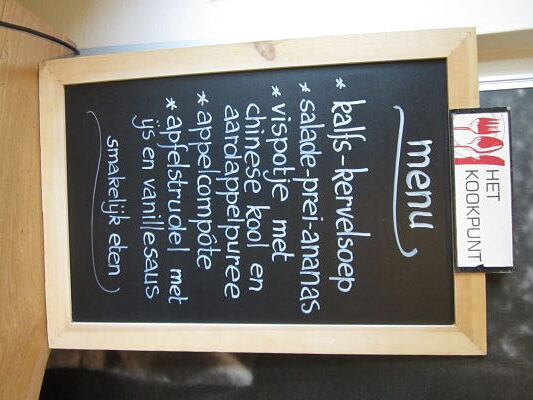 HET
KOOKPUNT
menu
* kalfs-kervelsoep
* salade-prei-ananas
* vispotje met
chinese kool en
aardappelpuree
* appelcompôte
* apfelstrudel met
ijs en vanillesaus
smakelijk eten